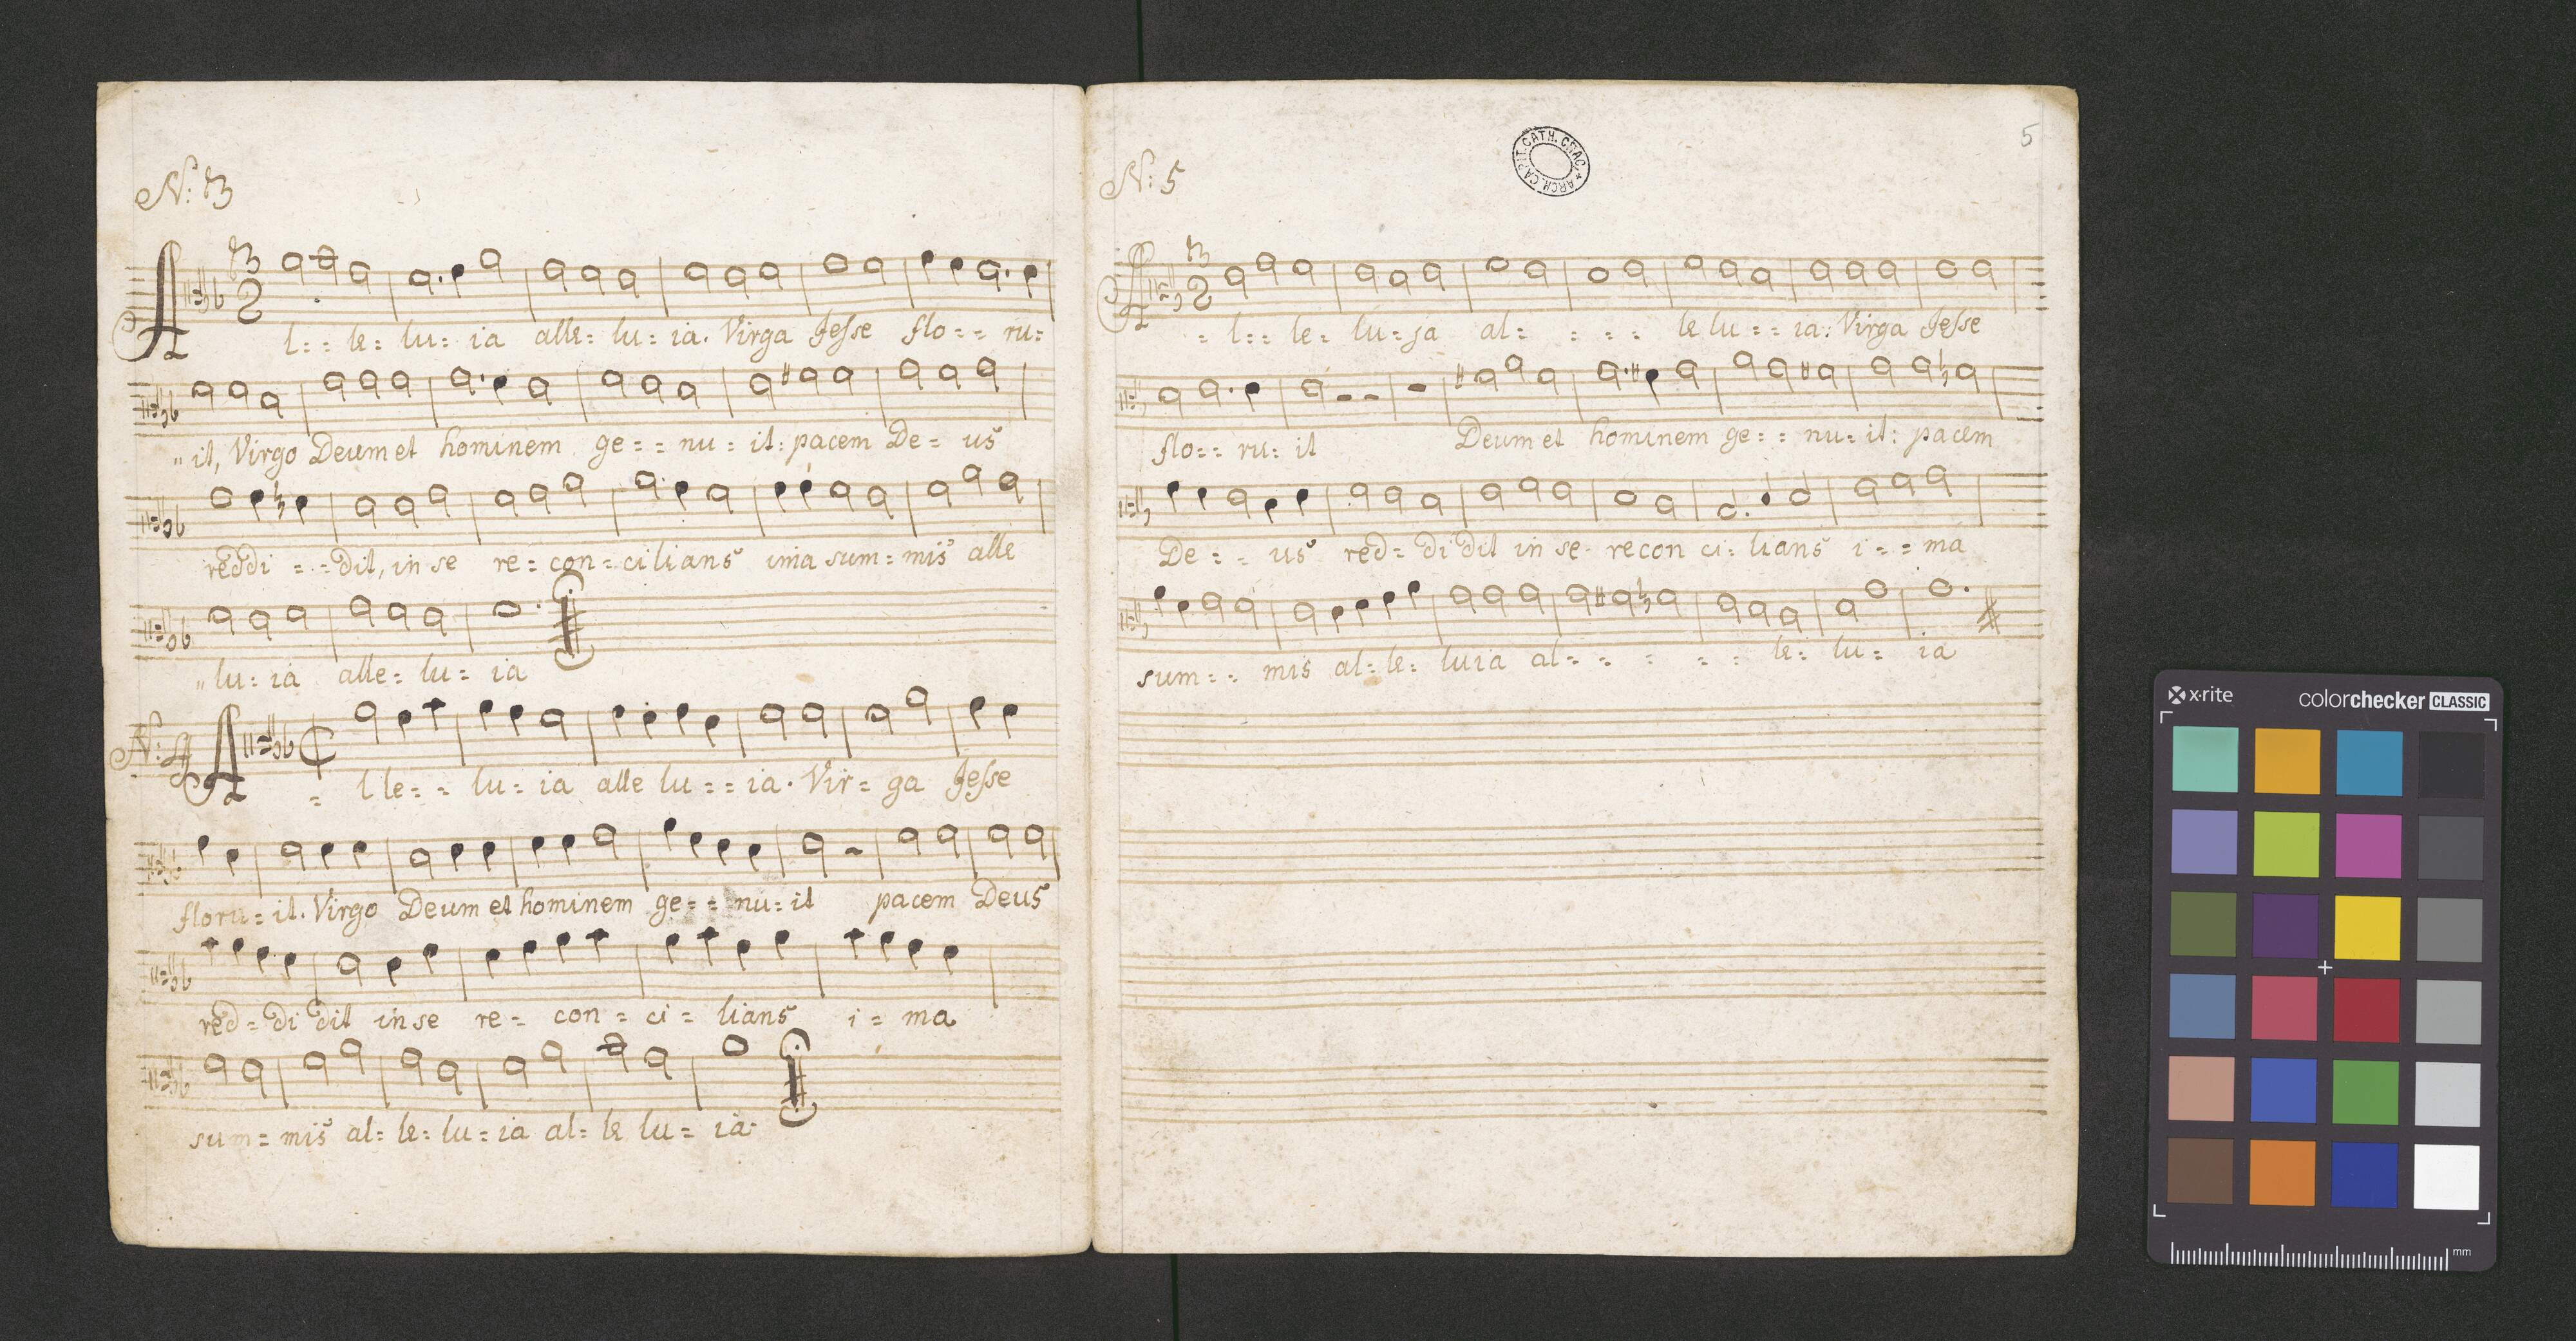 N: 3
3
2
Al: : le: lu: ia alle: lu: ia. Virga Jesse flo: : ru:
"it, Virgo Deum et hominem ge: : nu: it: pacem De: us
reddi : : dit, in se re: con: cilians ima sum: mis alle
"lu: ia alle: lu: ia
N: 4
A: lle: : lu: ia alle lu: : ia. Vir: ga Jesse
floru: it. Virgo Deum et hominem ge: : nu: it pacem Deus
red: di dit in se re: con: ci: lians i: ma
sum: mis al: le: lu: ia al: le lu: ia
5
ARCH. CAPIT. CATH. CRAC.
N: 5
3
2
A: l: : le: lu: ja al: : : : le lu: : ia: Virga Jesse
flo: : ru: it Deum et hominem ge: : nu: it: pacem
De: : us red: di dit in se recon ci: lians i: : ma
sum: : mis al: le: luia al: : : : : le: lu: ia
x·rite colorchecker CLASSIC
mm